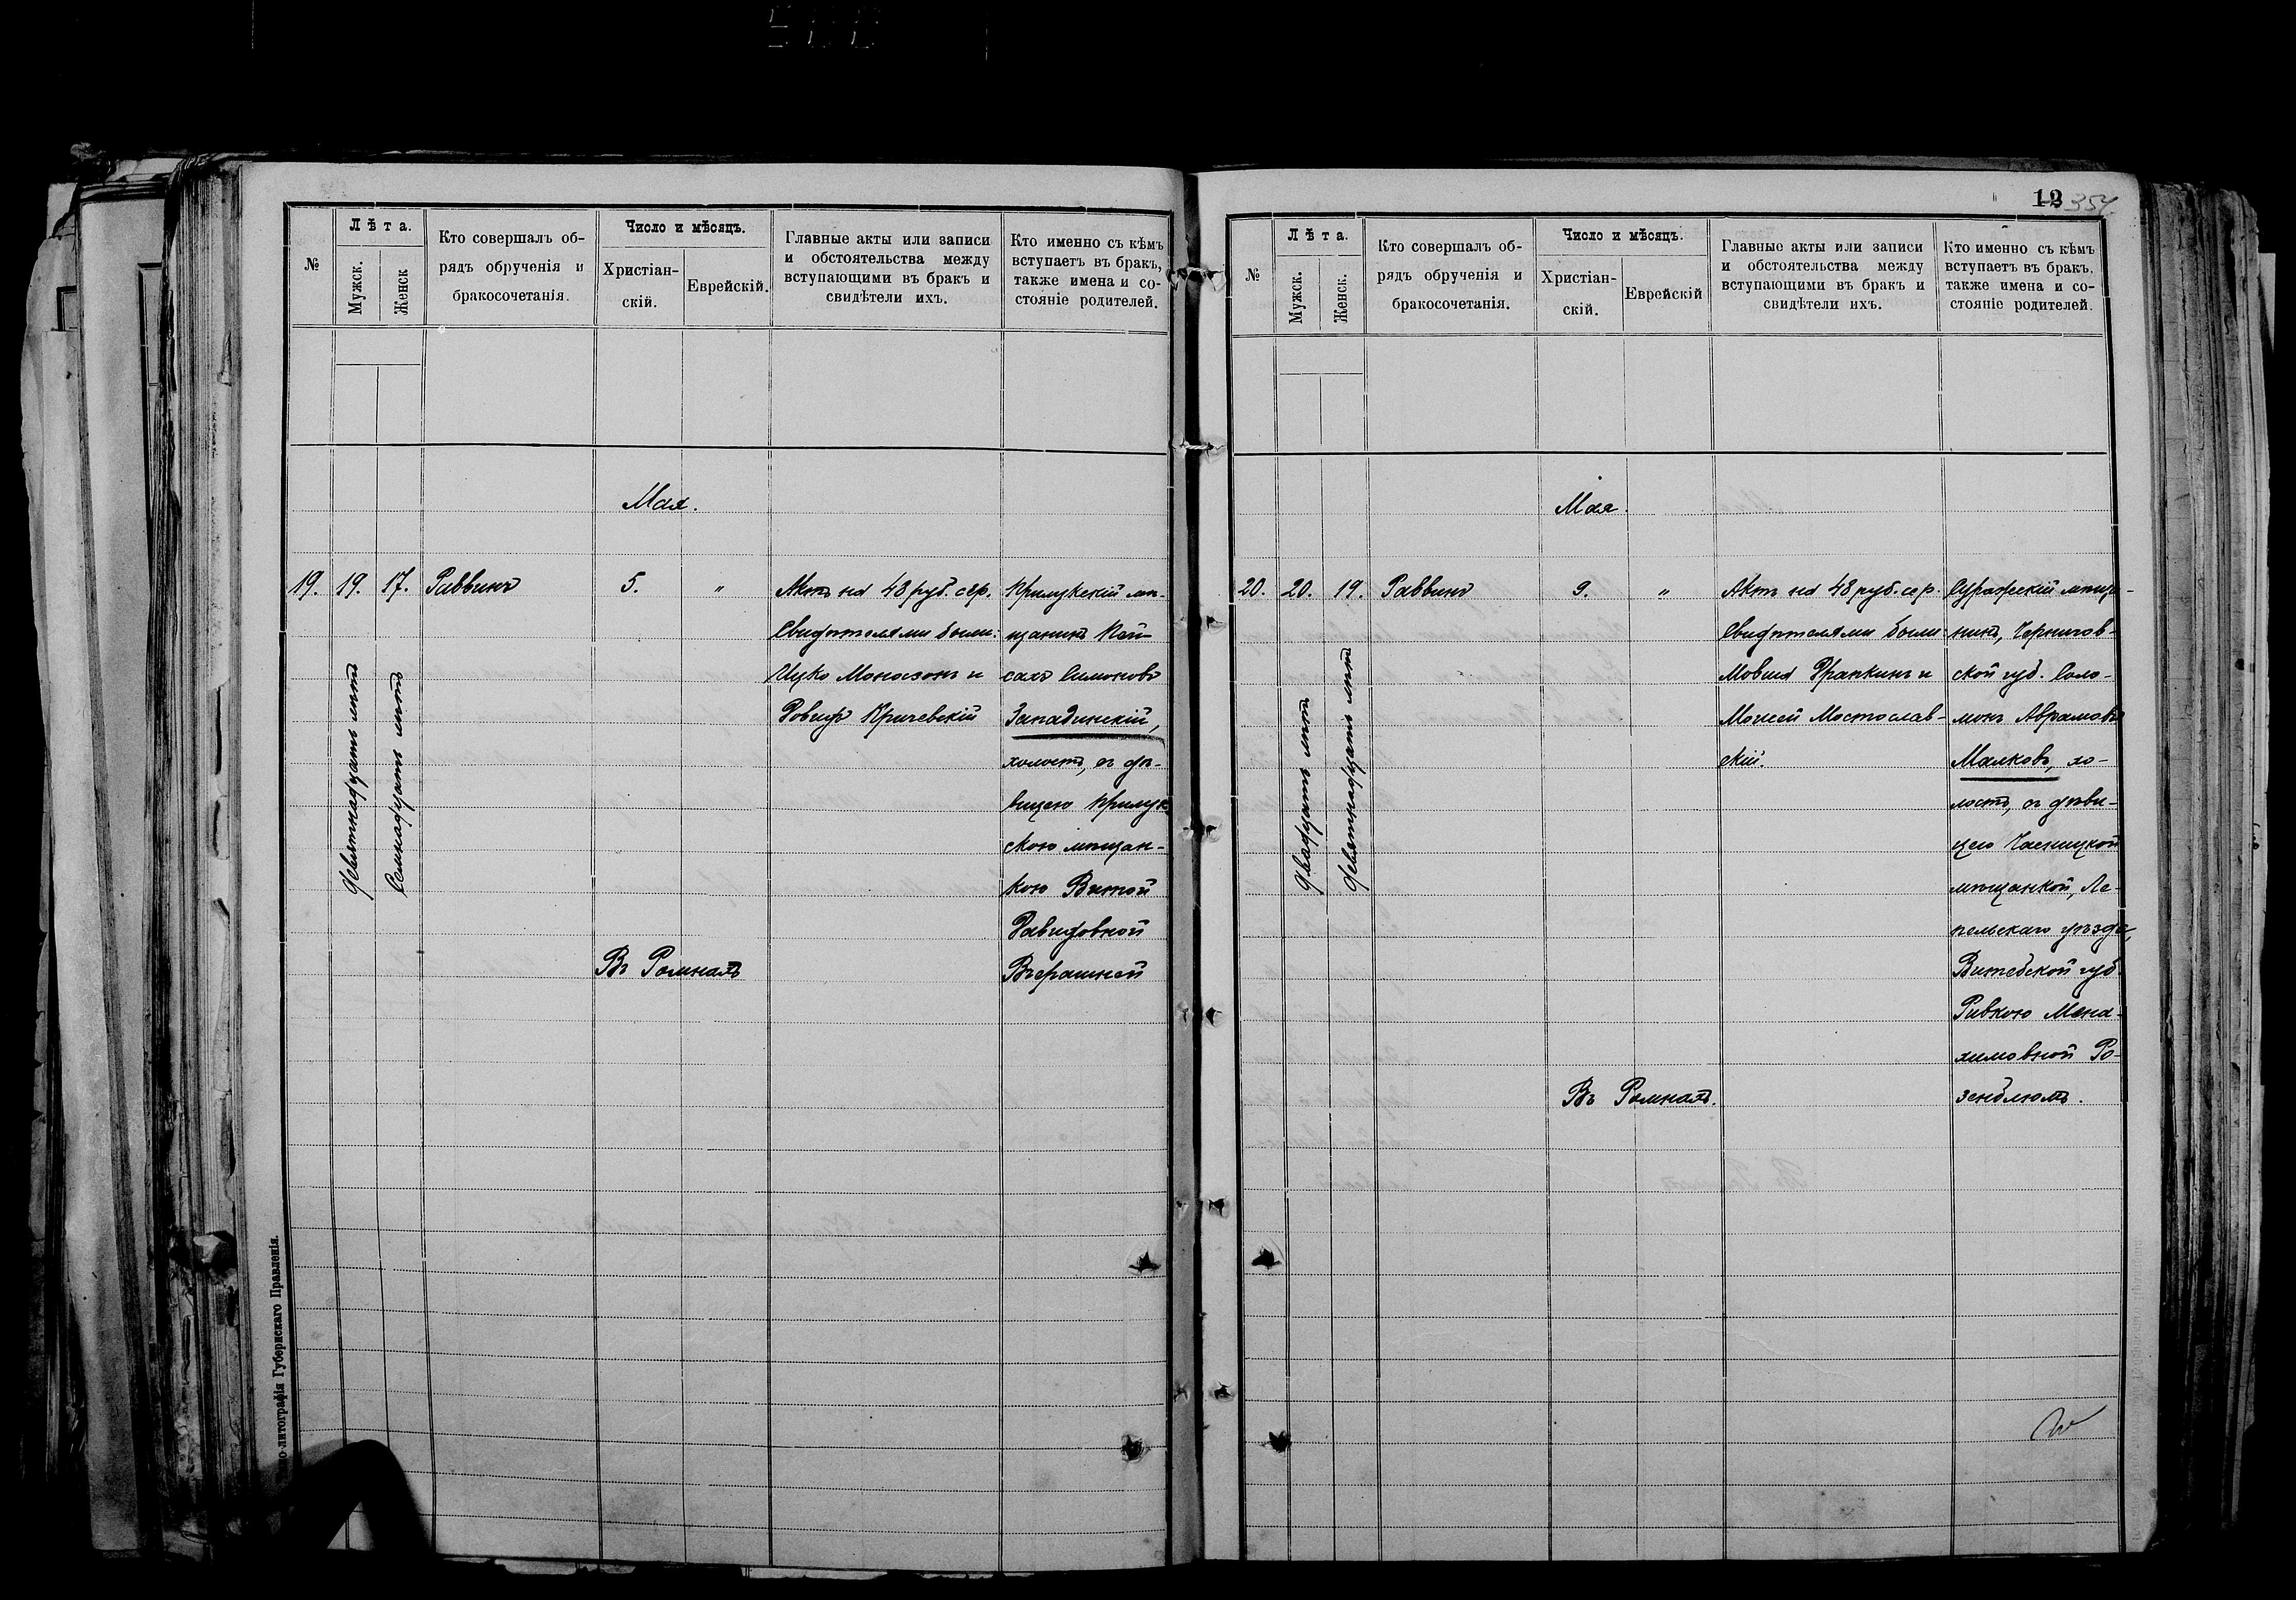 №
Лѣта.
Мужск.
Женск
Кто совершалъ об-
рядъ обрученія и
бракосочетанія.
Число и мѣсяцъ.
Христіан-
скій.
Еврейскій.
Главные акты или записи
и обстоятельства между
вступающими въ бракъ и
свидѣтели ихъ.
Кто именно съ кѣмъ
вступаетъ въ бракъ,
также имена и со-
стояніе родителей.
Мая.
19. 19. 17. Раввинъ 5. "
Девятнадцать лѣтъ
Семнадцать лѣтъ
Актъ на 48 руб. сер.
Свидѣтелями были:
Ицко Моносзонъ и
Довидъ Кричевскій
Прилукскій мѣ-
щанинъ Пей-
сахъ Симоновъ
Западинскій,
холостъ, съ дѣ-
вицею Прилук
скою мѣщан-
кою Витой
Давидовной
Вчерашней
Въ Ромнахъ
по-литографія Губернскаго Правленія.
12 354
№
Лѣта.
Мужск.
Женск.
Кто совершалъ об-
рядъ обрученія и
бракосочетанія.
Число и мѣсяцъ.
Христіан-
скій.
Еврейскій
Главные акты или записи
и обстоятельства между
вступающими въ бракъ и
свидѣтели ихъ.
Кто именно съ кѣмъ
вступаетъ въ бракъ,
также имена и со-
стояніе родителей.
Мая.
20. 20. 19. Раввинъ 9. "
Двадцать лѣтъ
Девятнадцать лѣтъ
Актъ на 48 руб. сер.
Свидѣтелями были
Мовша Фрапкинъ и
Мошей Мостослав-
скій.
Суражскій мѣща-
нинъ, Чернигов-
ской губ. Соло-
монъ Аврамовъ
Малковъ, хо-
лостъ, съ дѣви-
цею Чашницкой
мѣщанкой, Ле-
пельскаго уѣзда,
Витебской губ.
Ривкою Мена-
химовной Ро-
зенблюмъ.
Въ Ромнахъ.